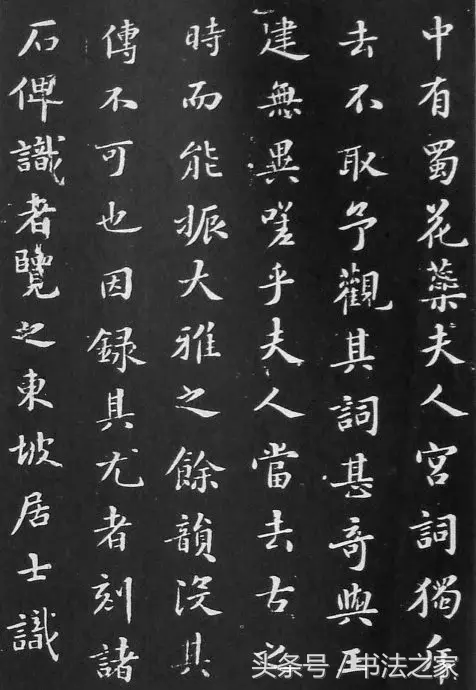 中有蜀花蘂夫人宮詞獨
去不取予觀其詞甚奇與王
建無異嗟乎夫人當去古
時而能振大雅之餘韻没其
傳不可也因録其尤者刻諸
石俾識者覽之東坡居士識
头条号 / 书法之家